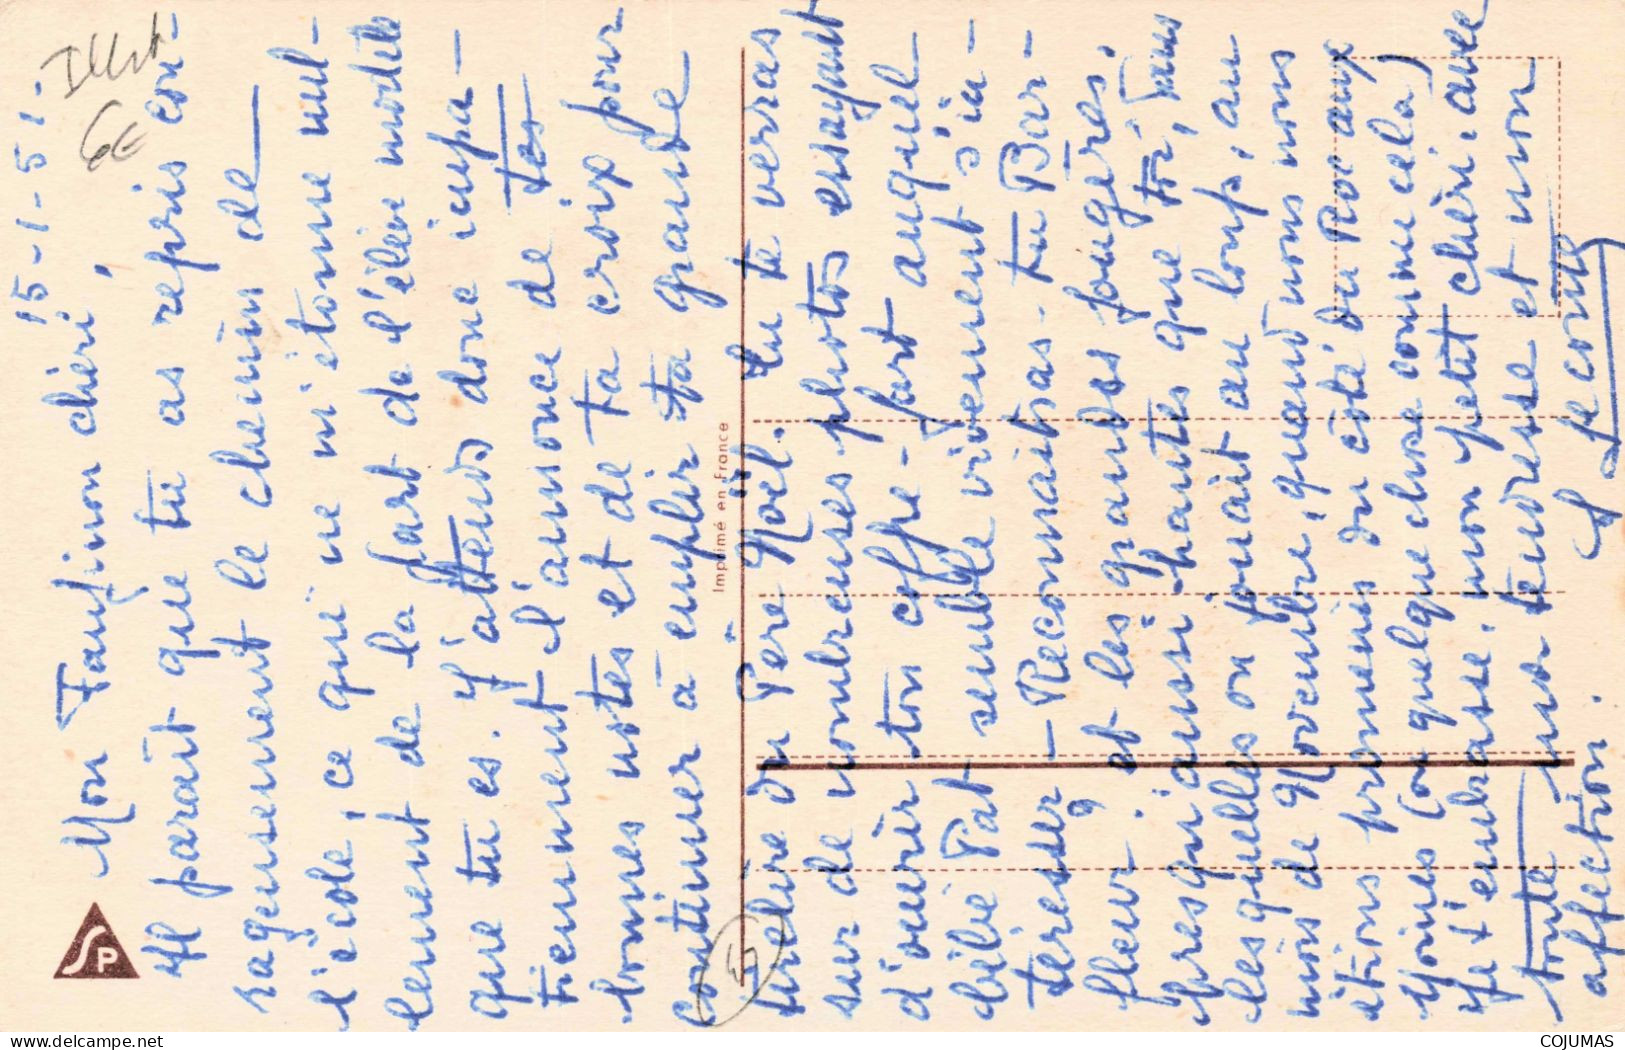 15-1-51-
Mon Fanfinon chéri,
Il parait que tu as repris cou-
rageusement le chemin de
l'école, ce qui ne m'étonne nul-
lement de la part de l'élève modèle
que tu es. J'attends donc impa-
tiemment l'annonce de tes
bonnes notes et de ta croix pour
continuer à emplir ta grande
tirelire du Père Noël. Tu te verras
sur de nombreuses photos essayant
d'ouvrir ton coffre-fort auquel
bébé Pat semble vivement s'in-
téresser - Reconnaitras-tu Bar-
fleur? et les grandes fougères,
presqu'aussi hautes que toi, dans
lesquelles on jouait au loup, au
mois de Novembre, quand nous nous
étions promenés du côté du Roc aux
Moines (ou quelque chose comme cela)
Je t'embrasse, mon petit chéri, avec
toute ma tendresse et mon
affection.
Imprimé en France
SP
5
6€
COJUMAS
delcampe.net